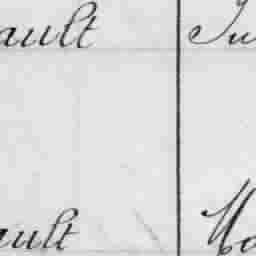 ault Ju
ault Ma